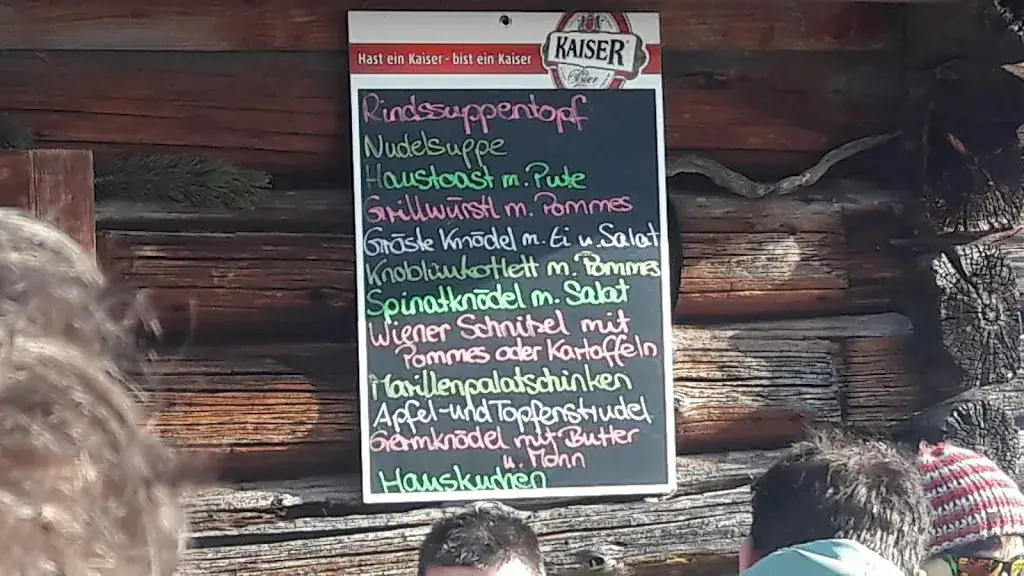 Hast ein Kaiser - bist ein Kaiser
KAISER
Bier
Rindssuppentopf
Nudelsuppe
Haustoast m. Pute
Grillwürstl m. Pommes
Gröste Knödel m. Ei u. Salat
Knoblaukotlett m. Pommes
Spinatknödel m. Salat
Wiener Schnitzel mit
Pommes oder Kartoffeln
Marillenpalatschinken
Apfel- und Topfenstrudel
Germknödel mit Butter
u. Mohn
Hauskuchen